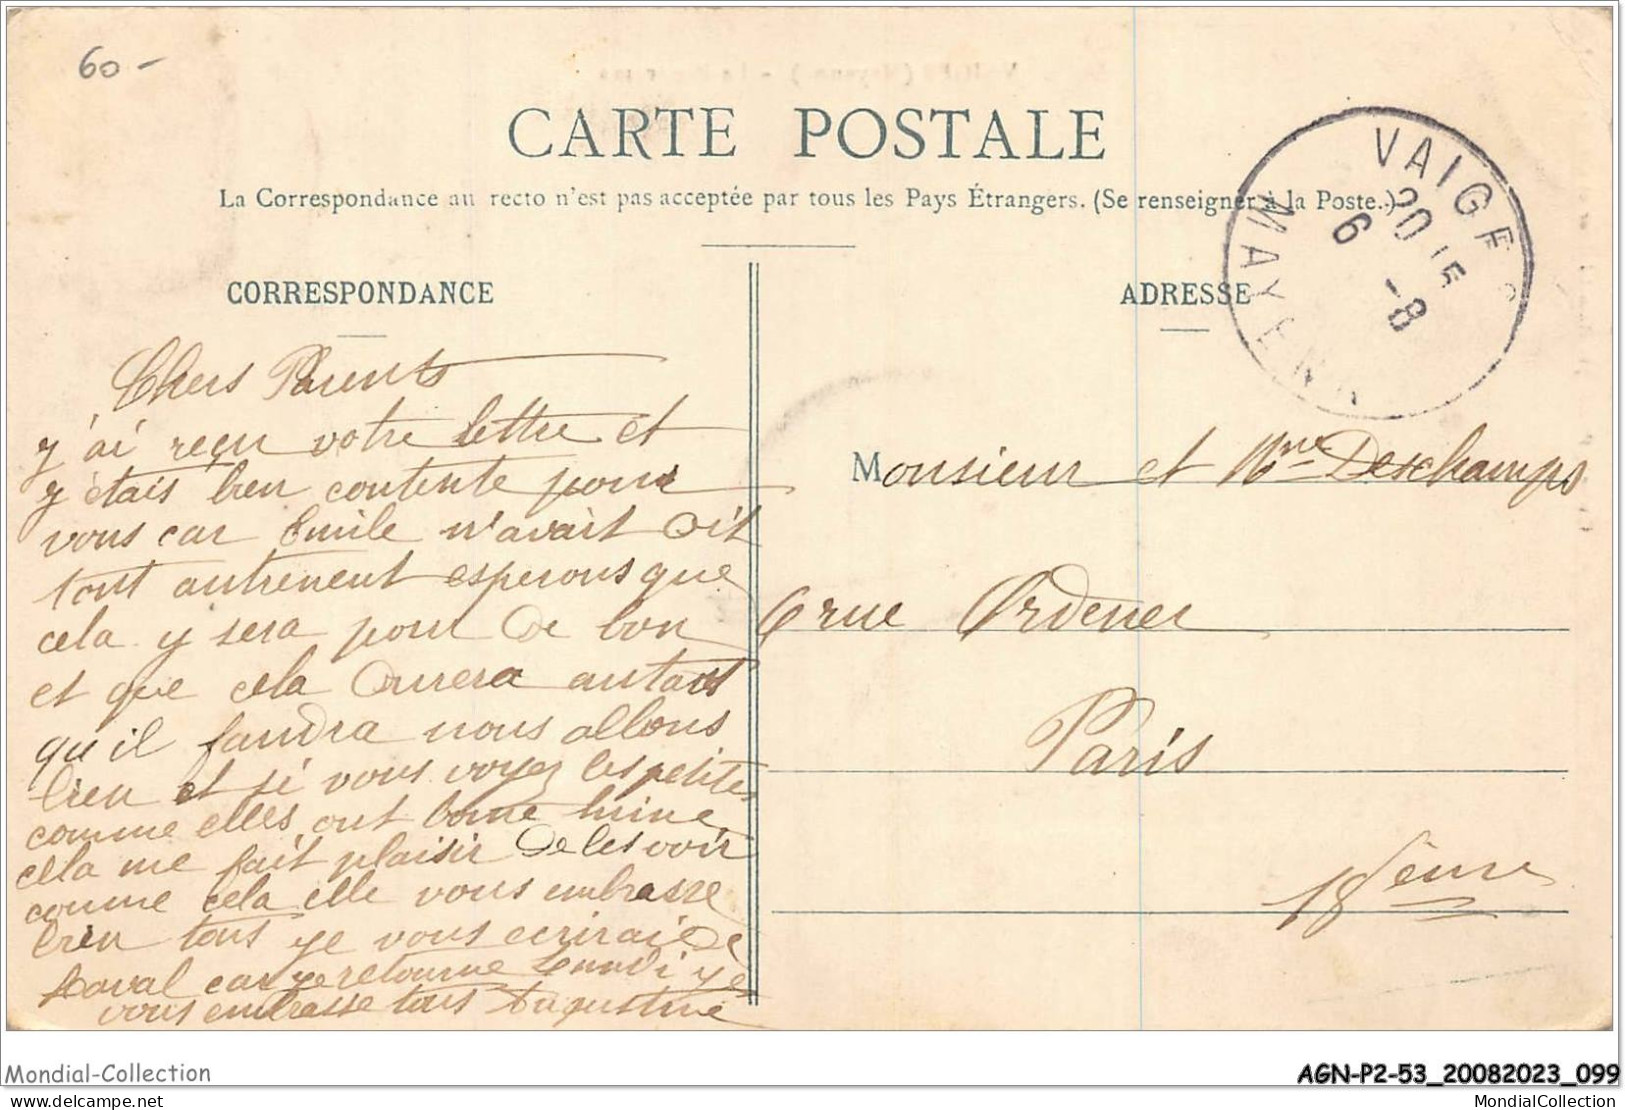 60-
CARTE POSTALE
La Correspondance au recto n'est pas acceptée par tous les Pays Étrangers. (Se renseigner à la Poste.)
CORRESPONDANCE
ADRESSE
VAIGES
20 15
6 -8
MAYENNE
Chers Parents
j'ai reçu votre lettre et
j'etais bien contente pour
vous car Emile n'avait dit
tout autrement esperons que
cela y sera pour de bon
et que cela durera autant
qu'il faudra nous allons
bien et si vous voyez les petites
comme elles ont bonne mine
cela me fait plaisir de les voir
comme cela elle vous embrasse
bien tous je vous ecrirai de
Laval car je retourne Lundi je
vous embrasse tous Augustine
Monsieur et Mme Deschamps
6 rue Ordener
Paris
18ème
Mondial-Collection
AGN-P2-53_20082023_099
delcampe.net
MondialCollection